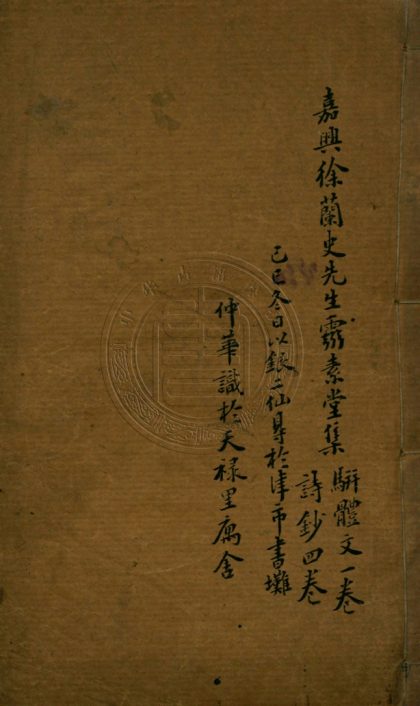 嘉興徐蘭史先生靈素堂集
駢體文一卷
詩鈔四卷
己巳冬日以銀二仙㝵於津市書攤
仲華識於天禄里庽舍